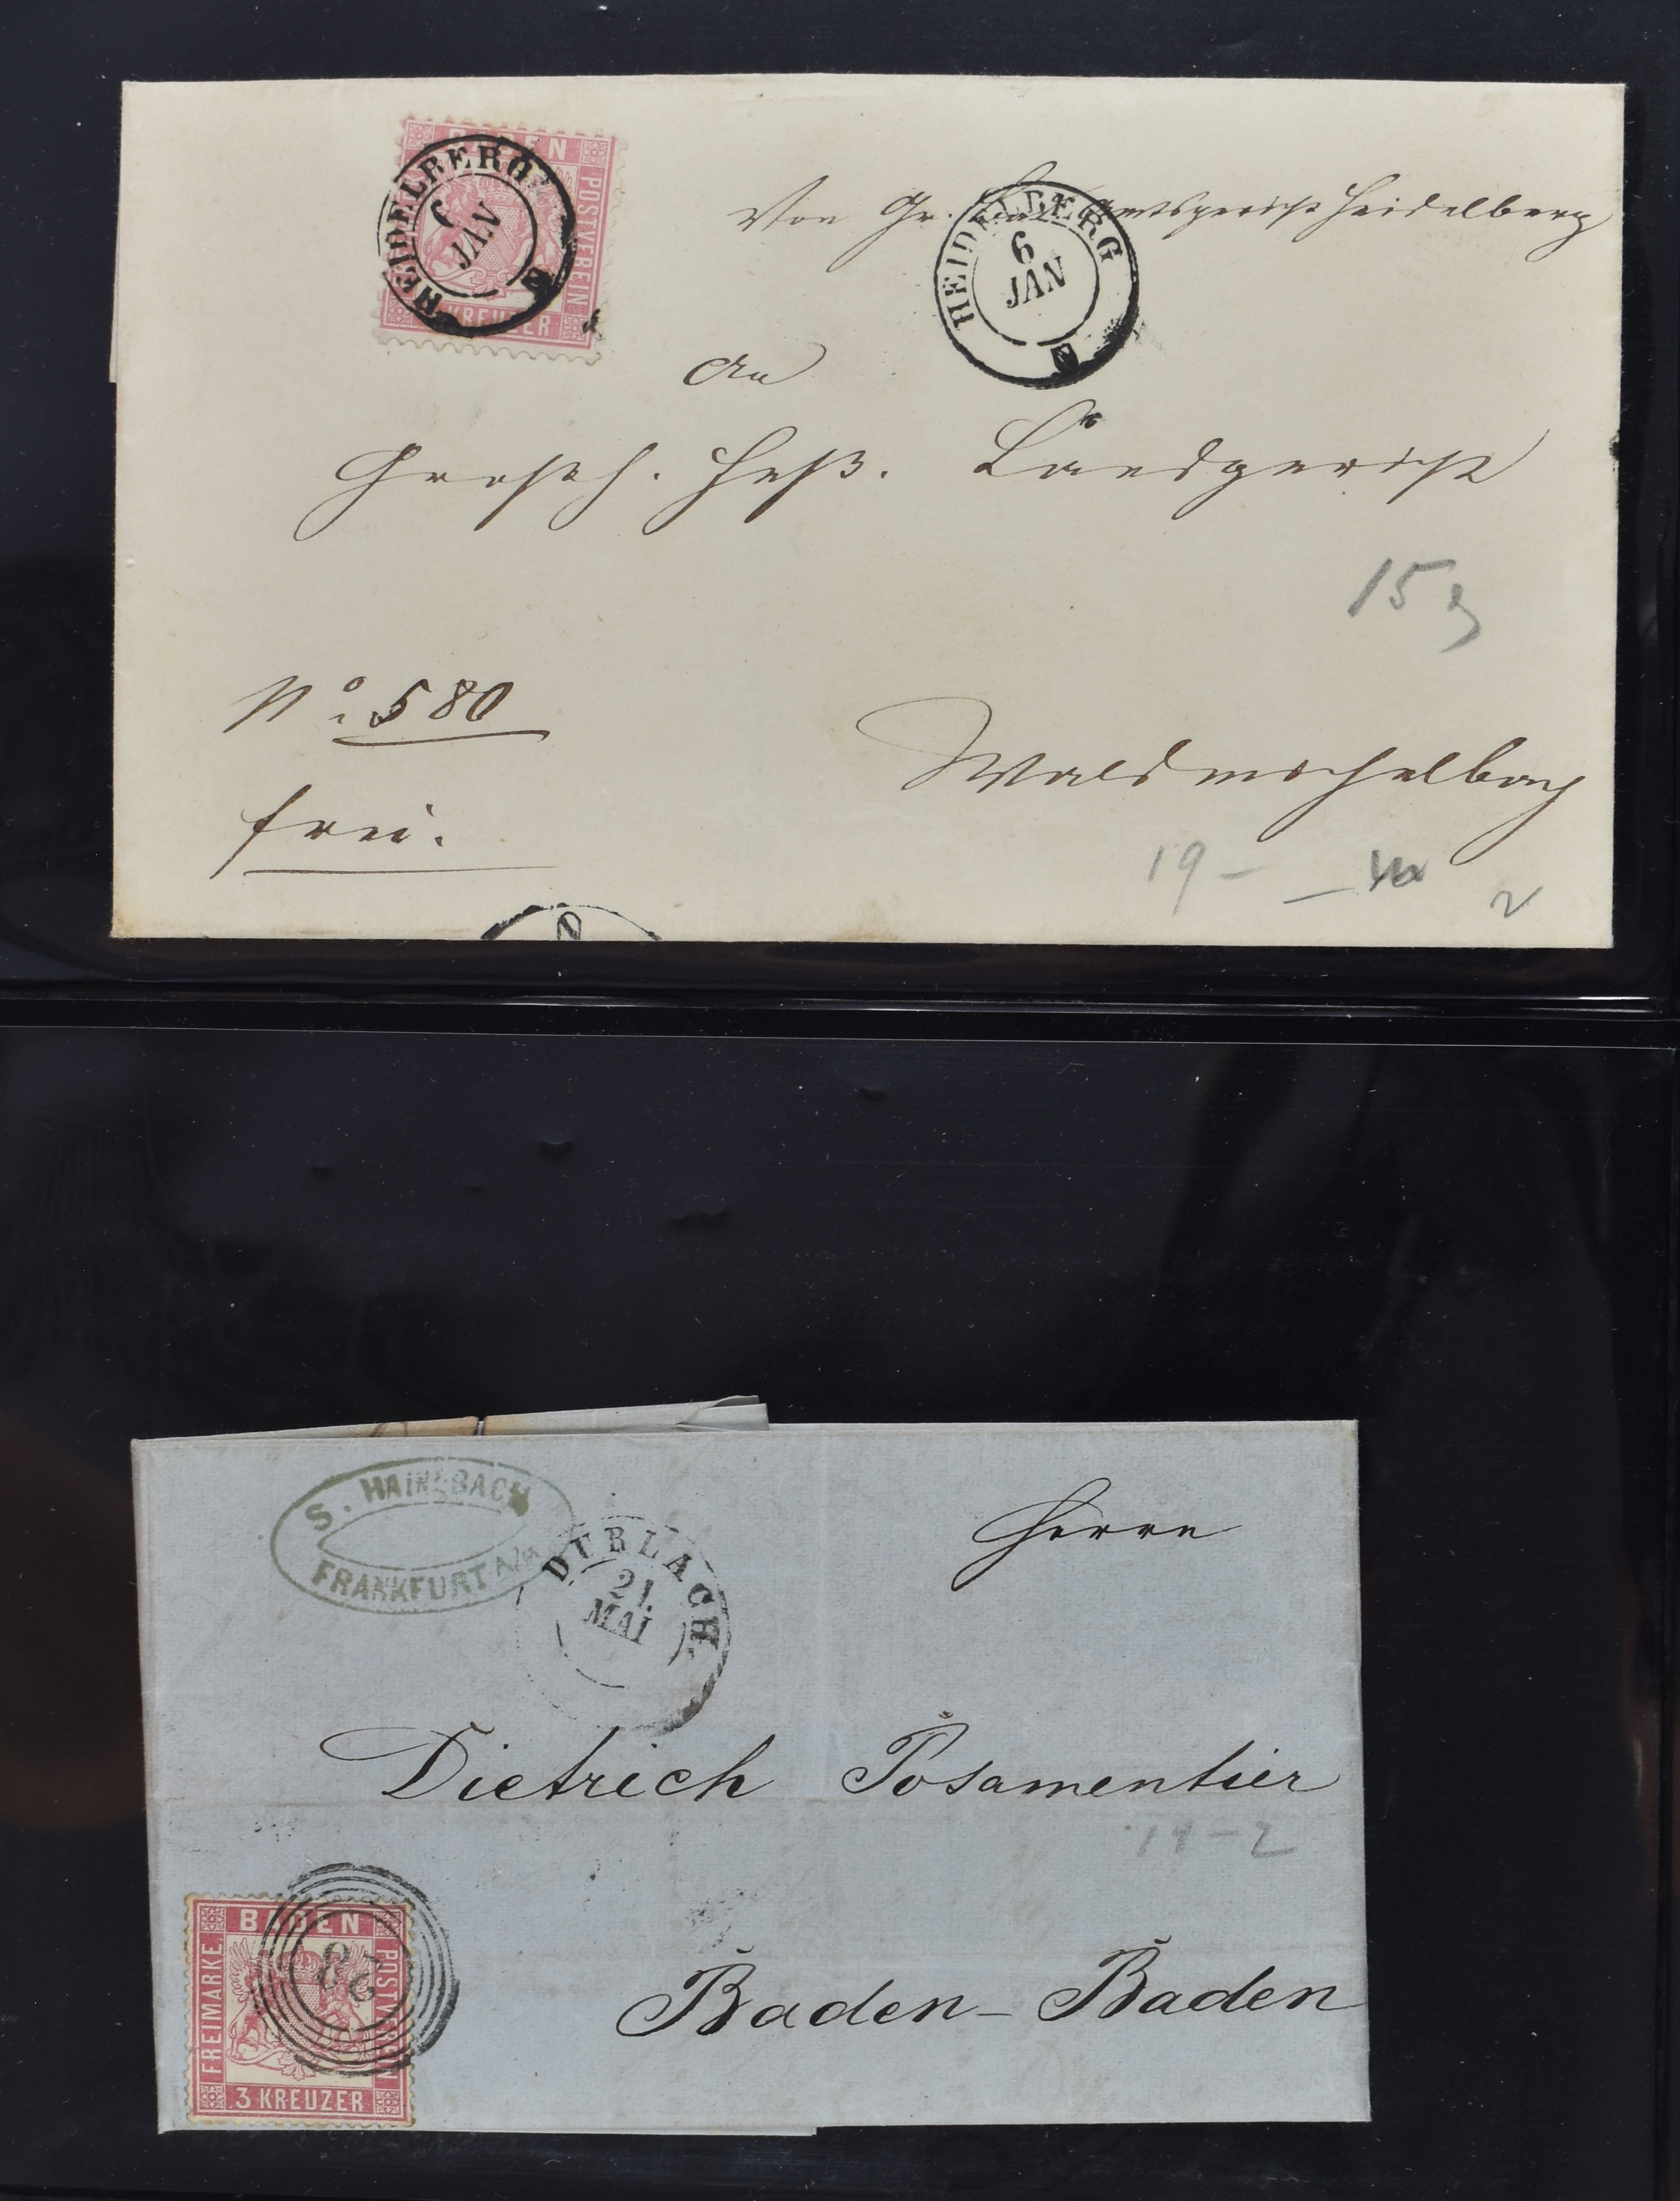 BADEN
POSTVEREIN
KREUZER
HEIDELBERG
6
JAN
Von Gr. Amtsgericht Heidelberg
HEIDELBERG
6
JAN
An
Großh. Heß. Landgericht
15
No. 580
Waldmichelbach
frei.
19 -
S. HAINEBACH
FRANKFURT A/M
DURLACH
21.
MAI
Herrn
Dietrich Posamentier
19-2
BADEN
FREIMARKE
POSTVEREIN
28
3 KREUZER
Baden-Baden